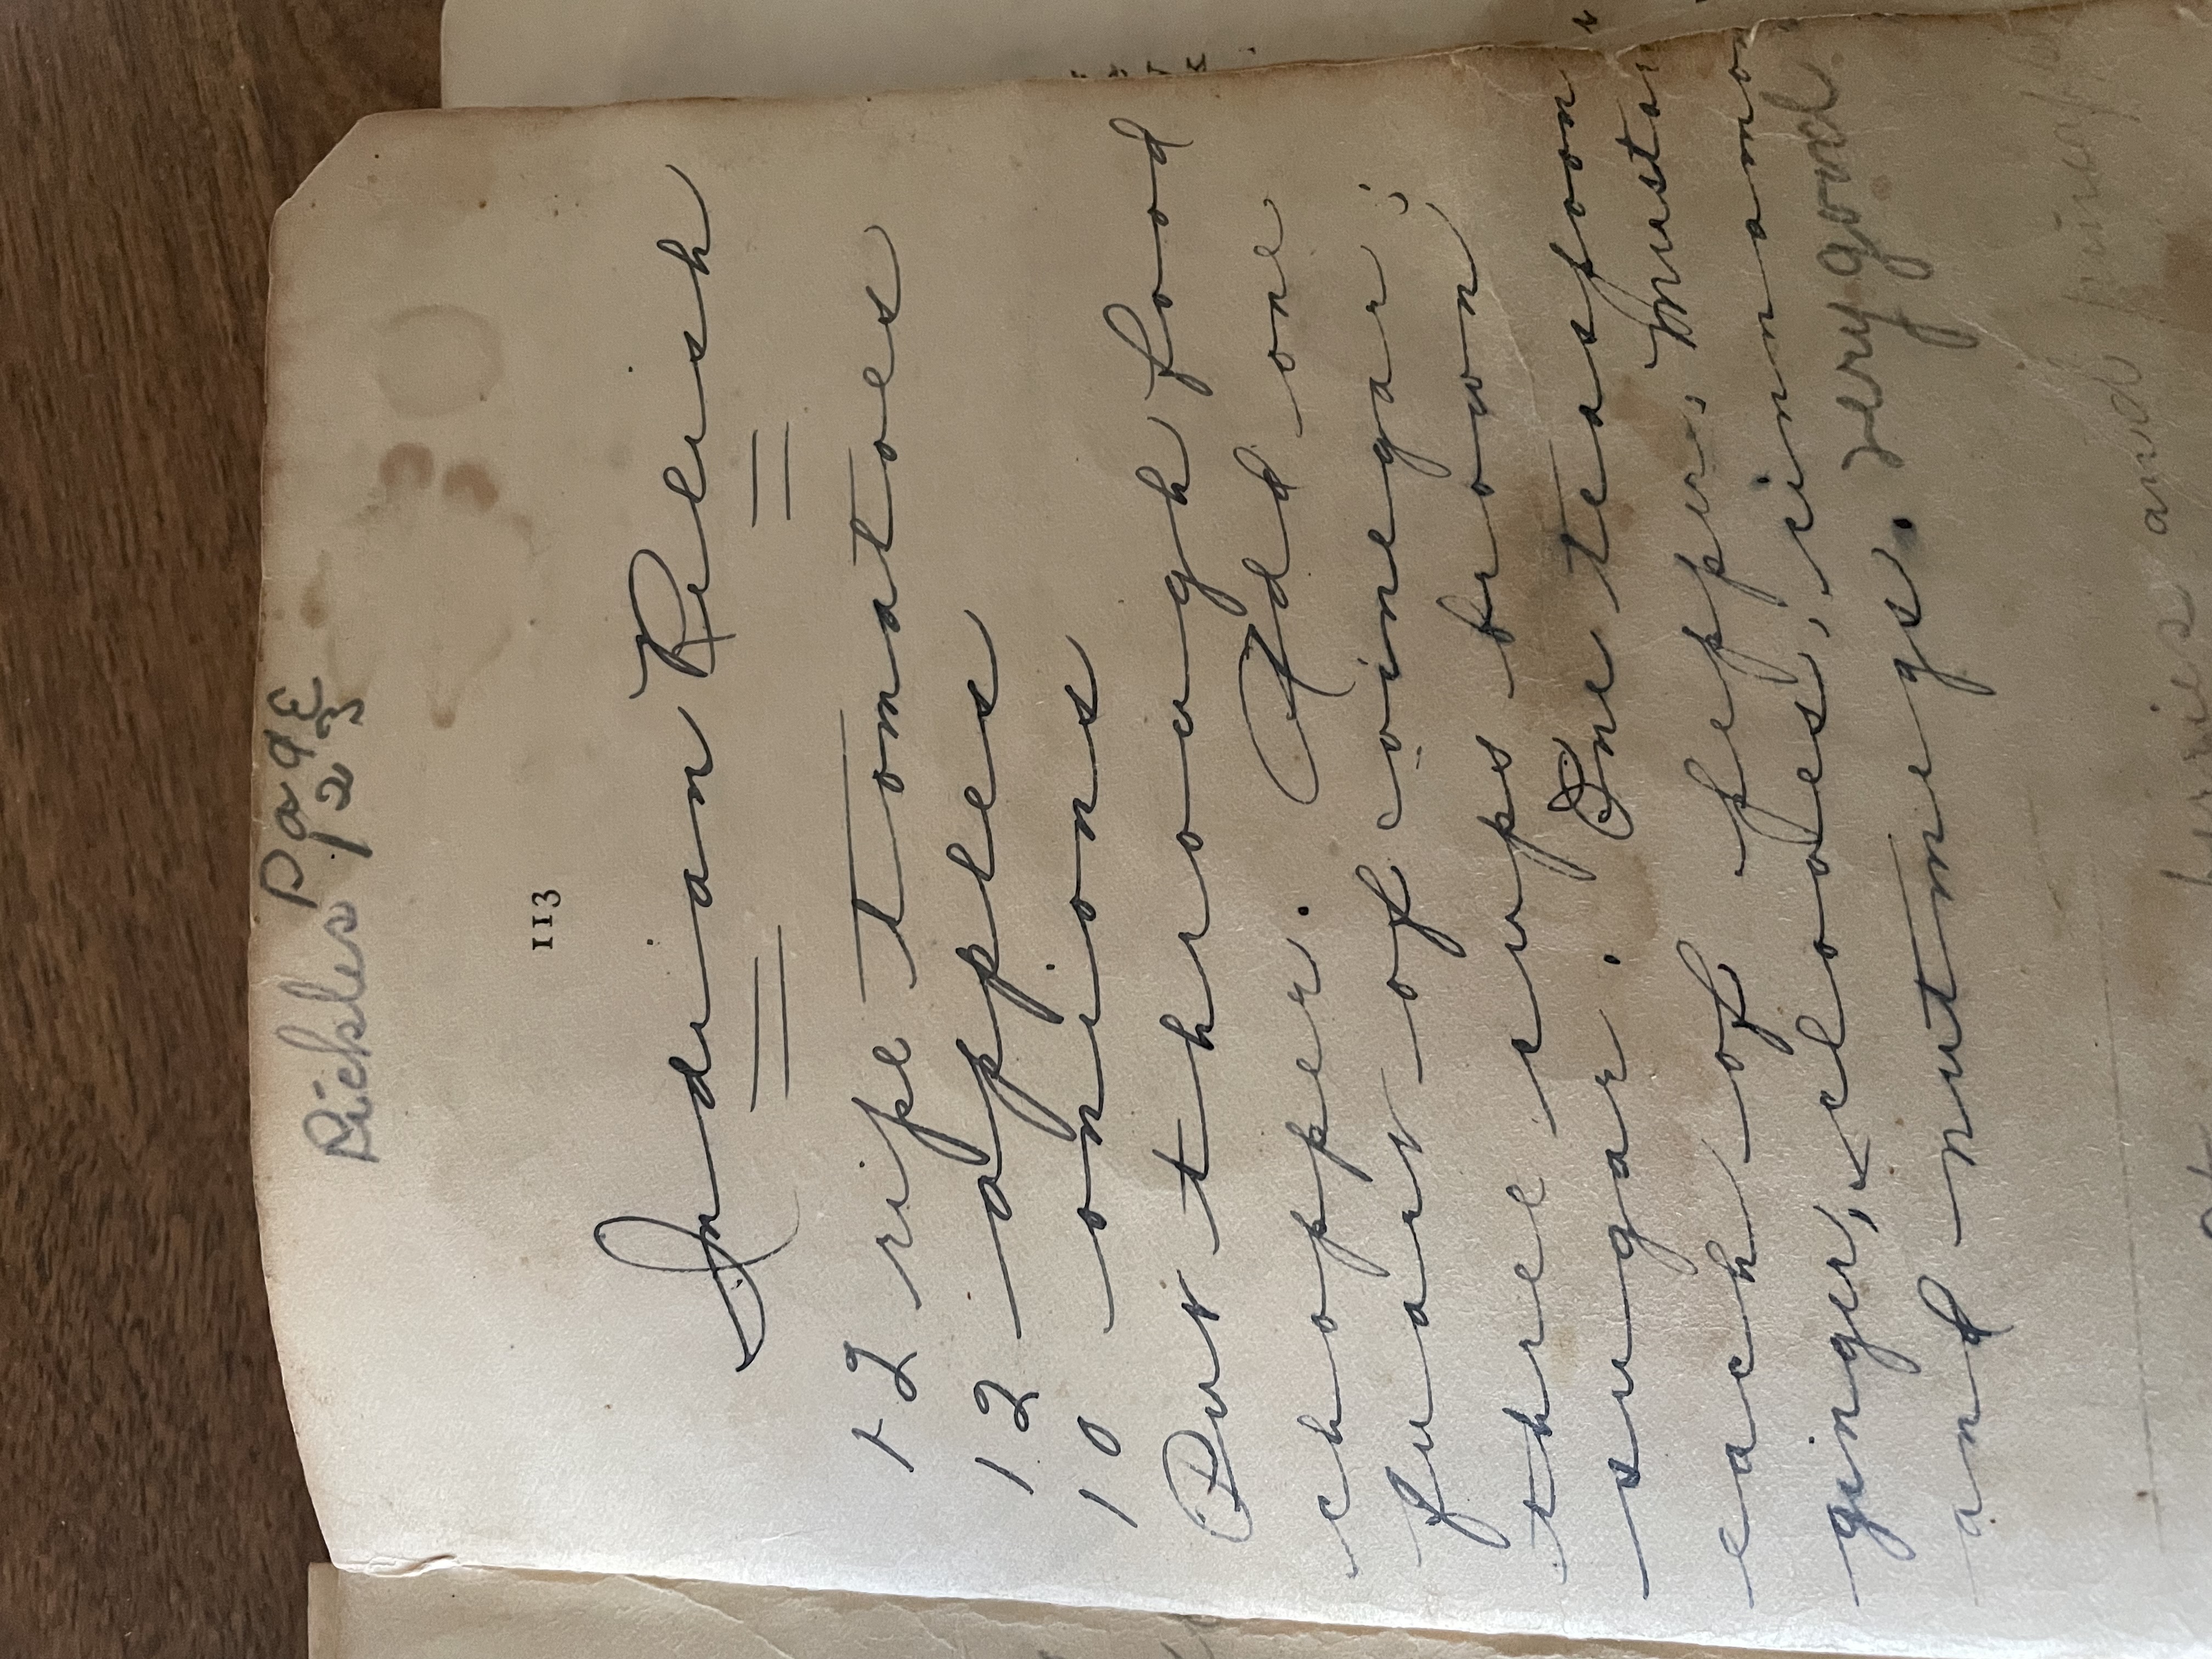 Page
Pickles 123
113
Indian Relish
12 ripe tomatoes
12 apples
10 onions
Put through food
chopper. Add one
quart of vinegar;
three cups brown
sugar. One teaspoon
each of pepper, mustar
ginger, cloves, cinnamon
and nutmegs. very good
berries and pineap